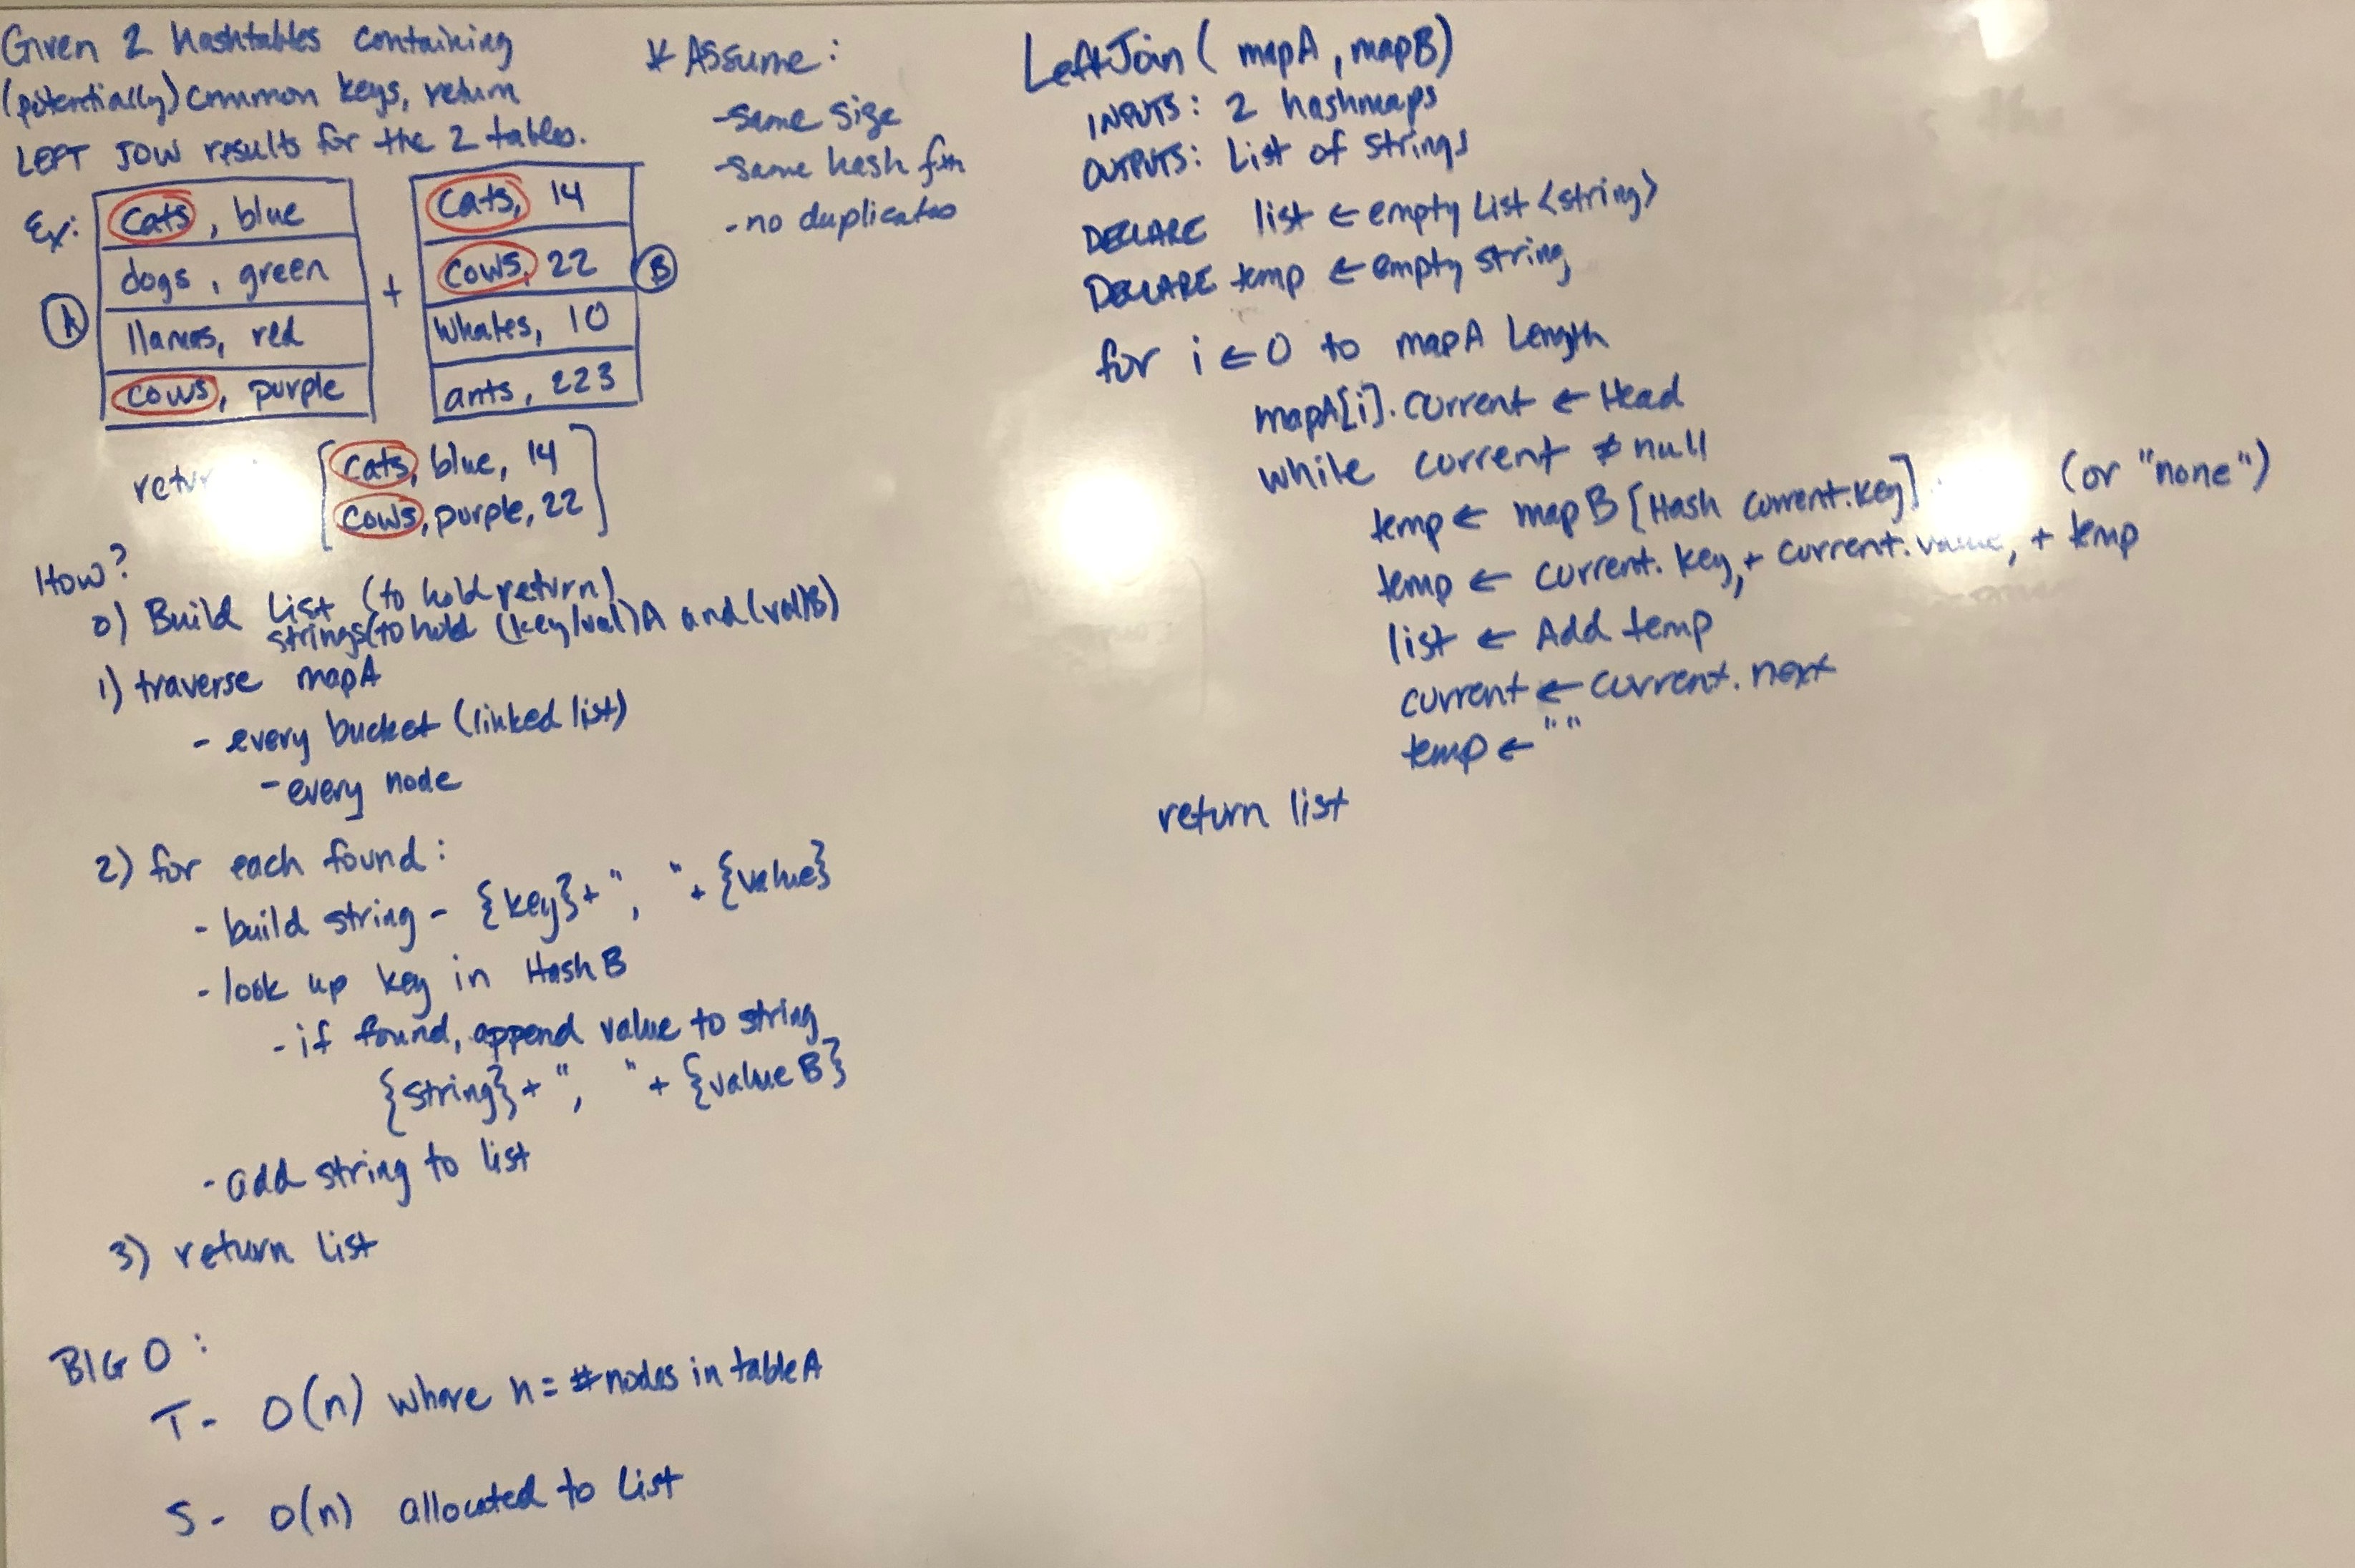 Given 2 hashtables containing
(potentially) common keys, return
LEFT JOIN results for the 2 tables.
Ex:
A
cats, blue
dogs, green
llamas, red
cows, purple
+
B
cats, 14
cows, 22
whales, 10
ants, 223
[cats, blue, 14
cows, purple, 22]
How?
0) Build List (to hold return)
strings (to hold (key/val)A and (val)B)
1) traverse mapA
- every bucket (linked list)
- every node
2) for each found:
- build string - {key} + ", " + {value}
- look up key in Hash B
- if found, append value to string
{string} + ", " + {value B}
- add string to list
3) return list
BIG O:
T - O(n) where n = # nodes in table A
S - O(n) allocated to List
* Assume:
- same size
- same hash fxn
- no duplicates
LeftJoin( mapA, mapB)
INPUTS: 2 hashmaps
OUTPUTS: List of strings
DECLARE list ← empty List <string>
DECLARE temp ← empty string
for i ← 0 to mapA Length
mapA[i].current ← Head
while current ≠ null
temp ← mapB [Hash current.key] (or "none")
temp ← current.key, + current.value, + temp
list ← Add temp
current ← current.next
temp ← ""
return list